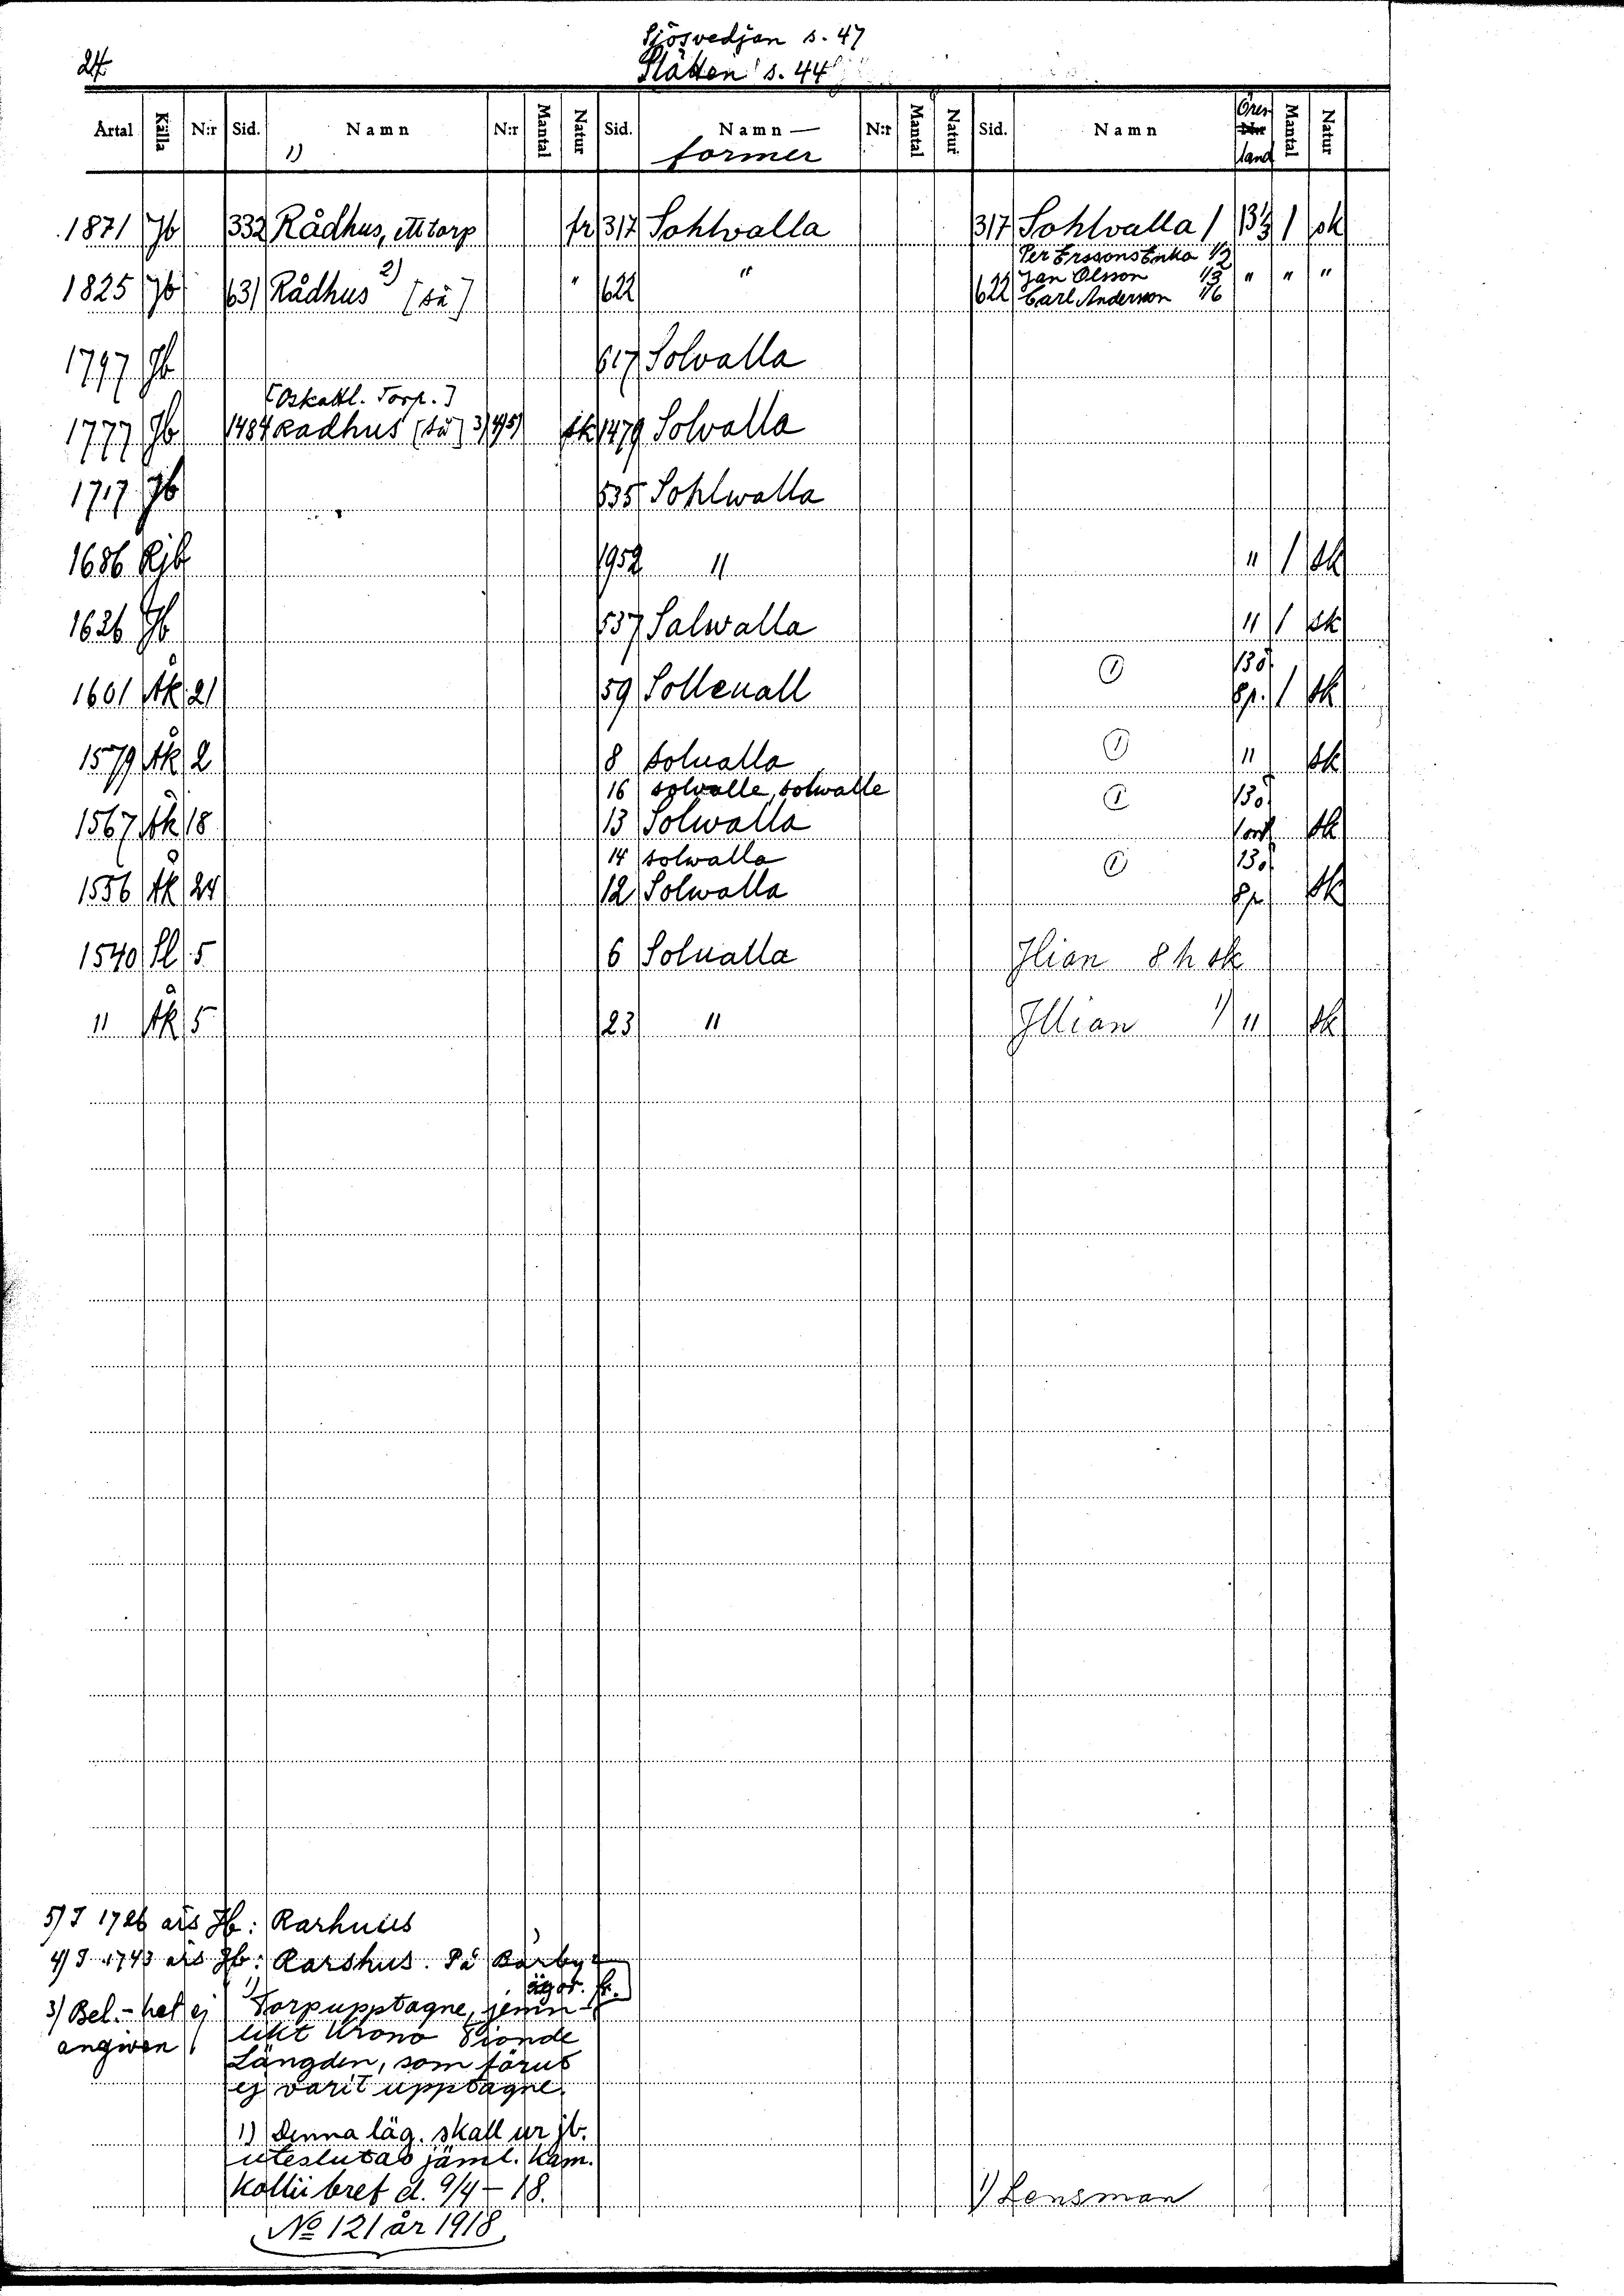 Sjösvedjan s. 47
24 Slätten s. 44
Artal Källa N:r Sid. Namn N:r Mantal Natur Sid. Namn — N:r Mantal Natur Sid. Namn Öres Mantal Natur
1) former land
1871 Jb 332 Rådhus, ett torp fr 317 Sohlvalla 317 Sohlvalla 1 13 1/3 1 sk
Per Erssons Enka 1/2
Jan Olsson 1/3 " " "
1825 Jb 631 Rådhus 2) [sä] " 622 " 622 Carl Anderson 1/6
1797 Jb 617 Solvalla
[Oskattl. Torp.]
1777 Jb 1484 Radhus [sä] 3) 4) 5) sk 1479 Solvalla
1717 Jb 535 Sohlwalla
1686 Rjb 1952 " " 1 sk
1626 Jb 537 Salwalla " 1 sk
1 13ö
1601 Åk 21 59 Solleuall 8p. 1 sk
1579 Åk 2 8 solualla 1 " sk
16 solvalle, solwalle 1 13ö
1567 Åk 18 13 Solwalla 1 ort sk
14 solwalla 1 13ö
1556 Åk 24 12 Solwalla 8p sk
1540 Sl 5 6 Solualla Jlian 8 h sk
" Åk 5 23 " Jllian 1) " sk
5) I 1726 års Jb: Rarhuus
4) I 1743 års Jb: Rarshus. På Barby
ägor. fr.
3) Bel.-het ej 1) Torp upptagne, jemn-
angiven likt Krono Tionde
Längden, som förut
ej varit upptagne.
1) Denna läg. skall ur jb.
uteslutas jäml. Kam.
Kollii bref d. 9/4 – 18. 1) Lensman
No 121 år 1918